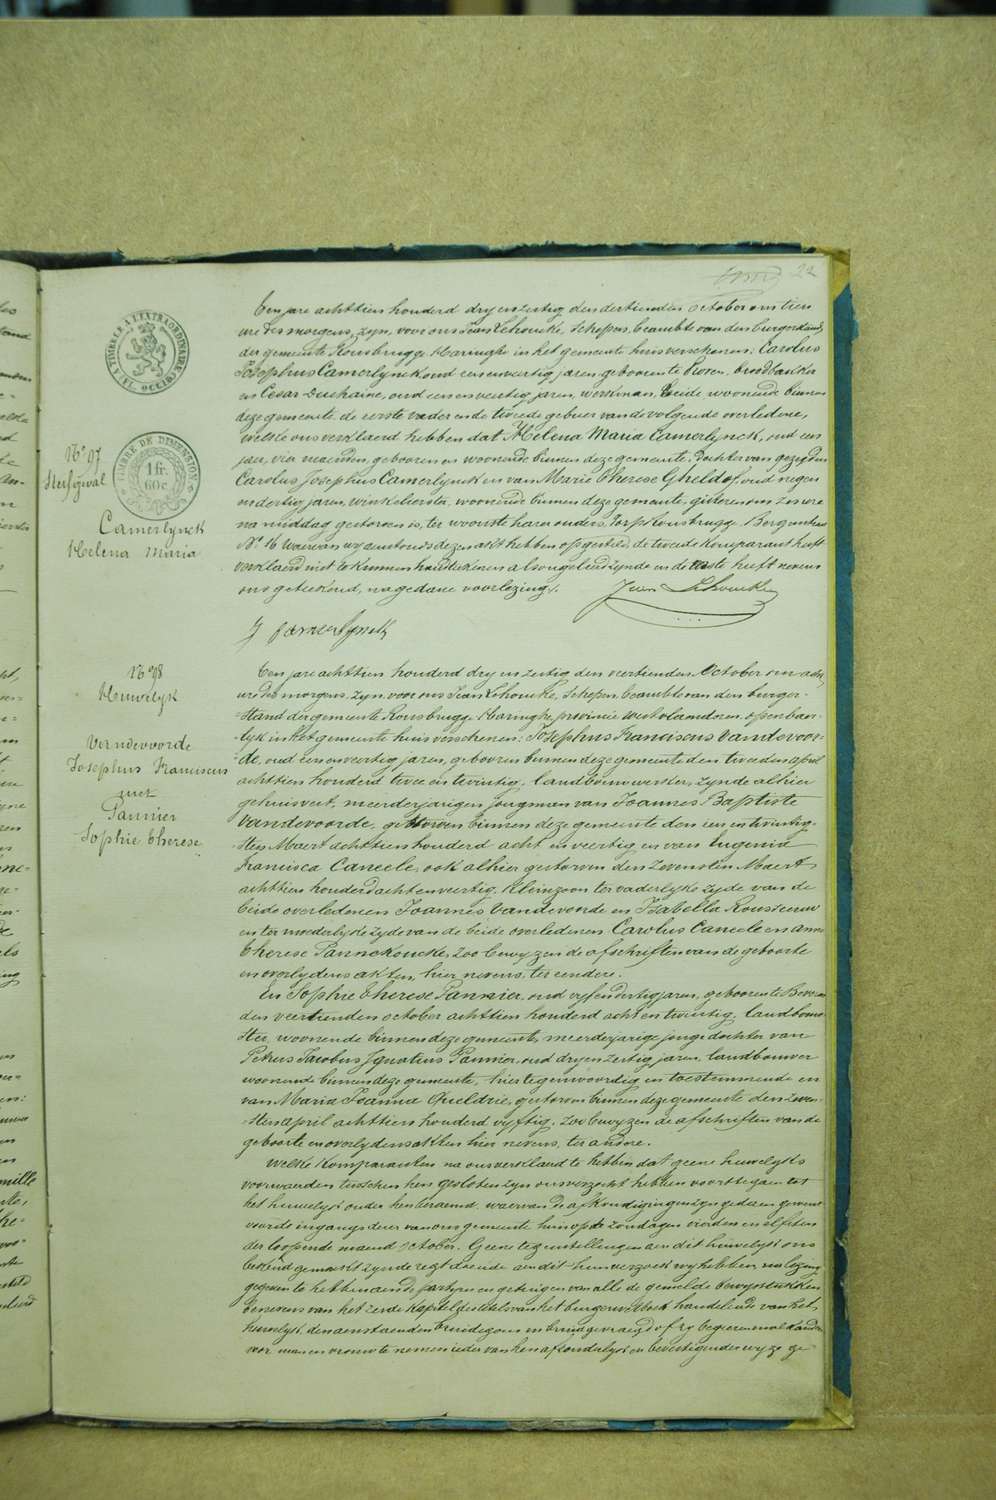 22
TIMBRE A L'EXTRAORDINAIRE
OCCID.
TIMBRE DE DIMENSION
1 fr
60c
N° 97
Sterfgeval
Camerlynck
Helena Maria
Een jare achttien honderd dry en zestig den dertienden October om tien
ure des morgens, zyn, voor ons Jean Lehoucke, Schepen beambte van den burgerstand,
der gemeente Rousbrugge Haringhe in het gemeente huis verschenen: Carolus
Josephus Camerlynck oud een en veertig jaren, geboren te broodbakker
en Cesar Duchaine, oud een en veertig jaren, werkman, beide woonende binnen
deze gemeente de eerste vader en de tweede gebuer van de volgende overledene,
welke ons verklaerd hebben dat Helena Maria Camerlynck, oud een
jaer, vier maenden, geboren en woonende binnen deze gemeente, dochter van gezegden
Carolus Josephus Camerlynck en van Marie Therese Gheldof, oud negen
en dertig jaren, winkelierster, woonende binnen deze gemeente, gisteren om zes ure
na middag gestorven is, ter woonste harer ouders, dorp Rousbrugge Bergenstraet
N° 16 Waervan wy aenstonds dezen akt hebben opgesteld, de tweede komparant heeft
verklaerd niet te kunnen handteekenen als ongeleerd zynde en de eerste heeft nevens
ons geteekend, na gedane voorlezing.
Jean Lehoucke
J Camerlynck
N° 98
Huwelyk
Vandevoorde
Josephus Franciscus
met
Pannier
Sophie Therese
Een jare achttien honderd dry en zestig den veertienden October om acht
ure des morgens, zyn, voor ons Jean Lehoucke, Schepen beambte van den burger-
stand der gemeente Rousbrugge Haringhe, provincie westvlaenderen, openbaer-
lyk in het gemeente huis verschenen: Josephus Franciscus Vandevoor-
de, oud een en veertig jaren, geboren binnen deze gemeente den tweeden april
achttien honderd twee en twintig, landbouwwerker, zynde alhier
gehuisvest, meerderjarigen jongman van Joannes Baptiste
Vandevoorde, gestorven binnen deze gemeente den een en twintig-
sten Maert achttien honderd acht en veertig, en van Eugenia
Francisca Caneele, ook alhier gestorven den zevensten Maert
achttien honderd acht en veertig. Kleinzoon ter vaderlyke zyde van de
beide overledenen Joannes Vandevoorde en Isabella Rousseeuw
en ter moederlyke zyde van de beide overledenen Carolus Caneele en Anne
Therese Pannekoucke, zoo bewyzen de afschriften van de geboorte
en overlydens akten, hier nevens, ter eendere.
En Sophie Therese Pannier, oud vyf en dertig jaren, geboren te Beveren
den veertienden October achttien honderd acht en twintig, landbouw-
ster, woonende binnen deze gemeente, meerderjarige jonge dochter van
Petrus Jacobus Ignatius Pannier, oud dry en zestig jaren, landbouwer
woonende binnen deze gemeente, hier tegenwoordig en toestemmende en
van Maria Joanna Queldrie, gestorven binnen deze gemeente den zeven-
sten april achttien honderd vyftig, zoo bewyzen de afschriften van de
geboorte en overlydens akten hier nevens, ter andere.
Welke komparanten na ons verklaerd te hebben dat geene huwelyks
voorwaerden tusschen hen gesloten zyn ons verzocht hebben voort te gaen tot
het huwelyk onder hen beraemd, waervan de afkondigingen zyn gedaen geweest
voor de ingangs deur van ons gemeente huis op de zondagen vierden en elfsten
der loopende maend October. Geene tegenstellingen aen dit huwelyk ons
bekend gemaekt zynde regt doende aen dit hun verzoek wy hebben na lezing
gegeven te hebben aen de partyen en getuigen van alle de gemelde bewysstukken
benevens van het zesde kapittel des titels van het burgerwetboek handelende van het
huwelyk, den aenstaenden bruidegom en bruid gevraegd of zy begeeren malkander
voor man en vrouw te nemen ieder van hen afzonderlyk en bevestigender wyze ge-